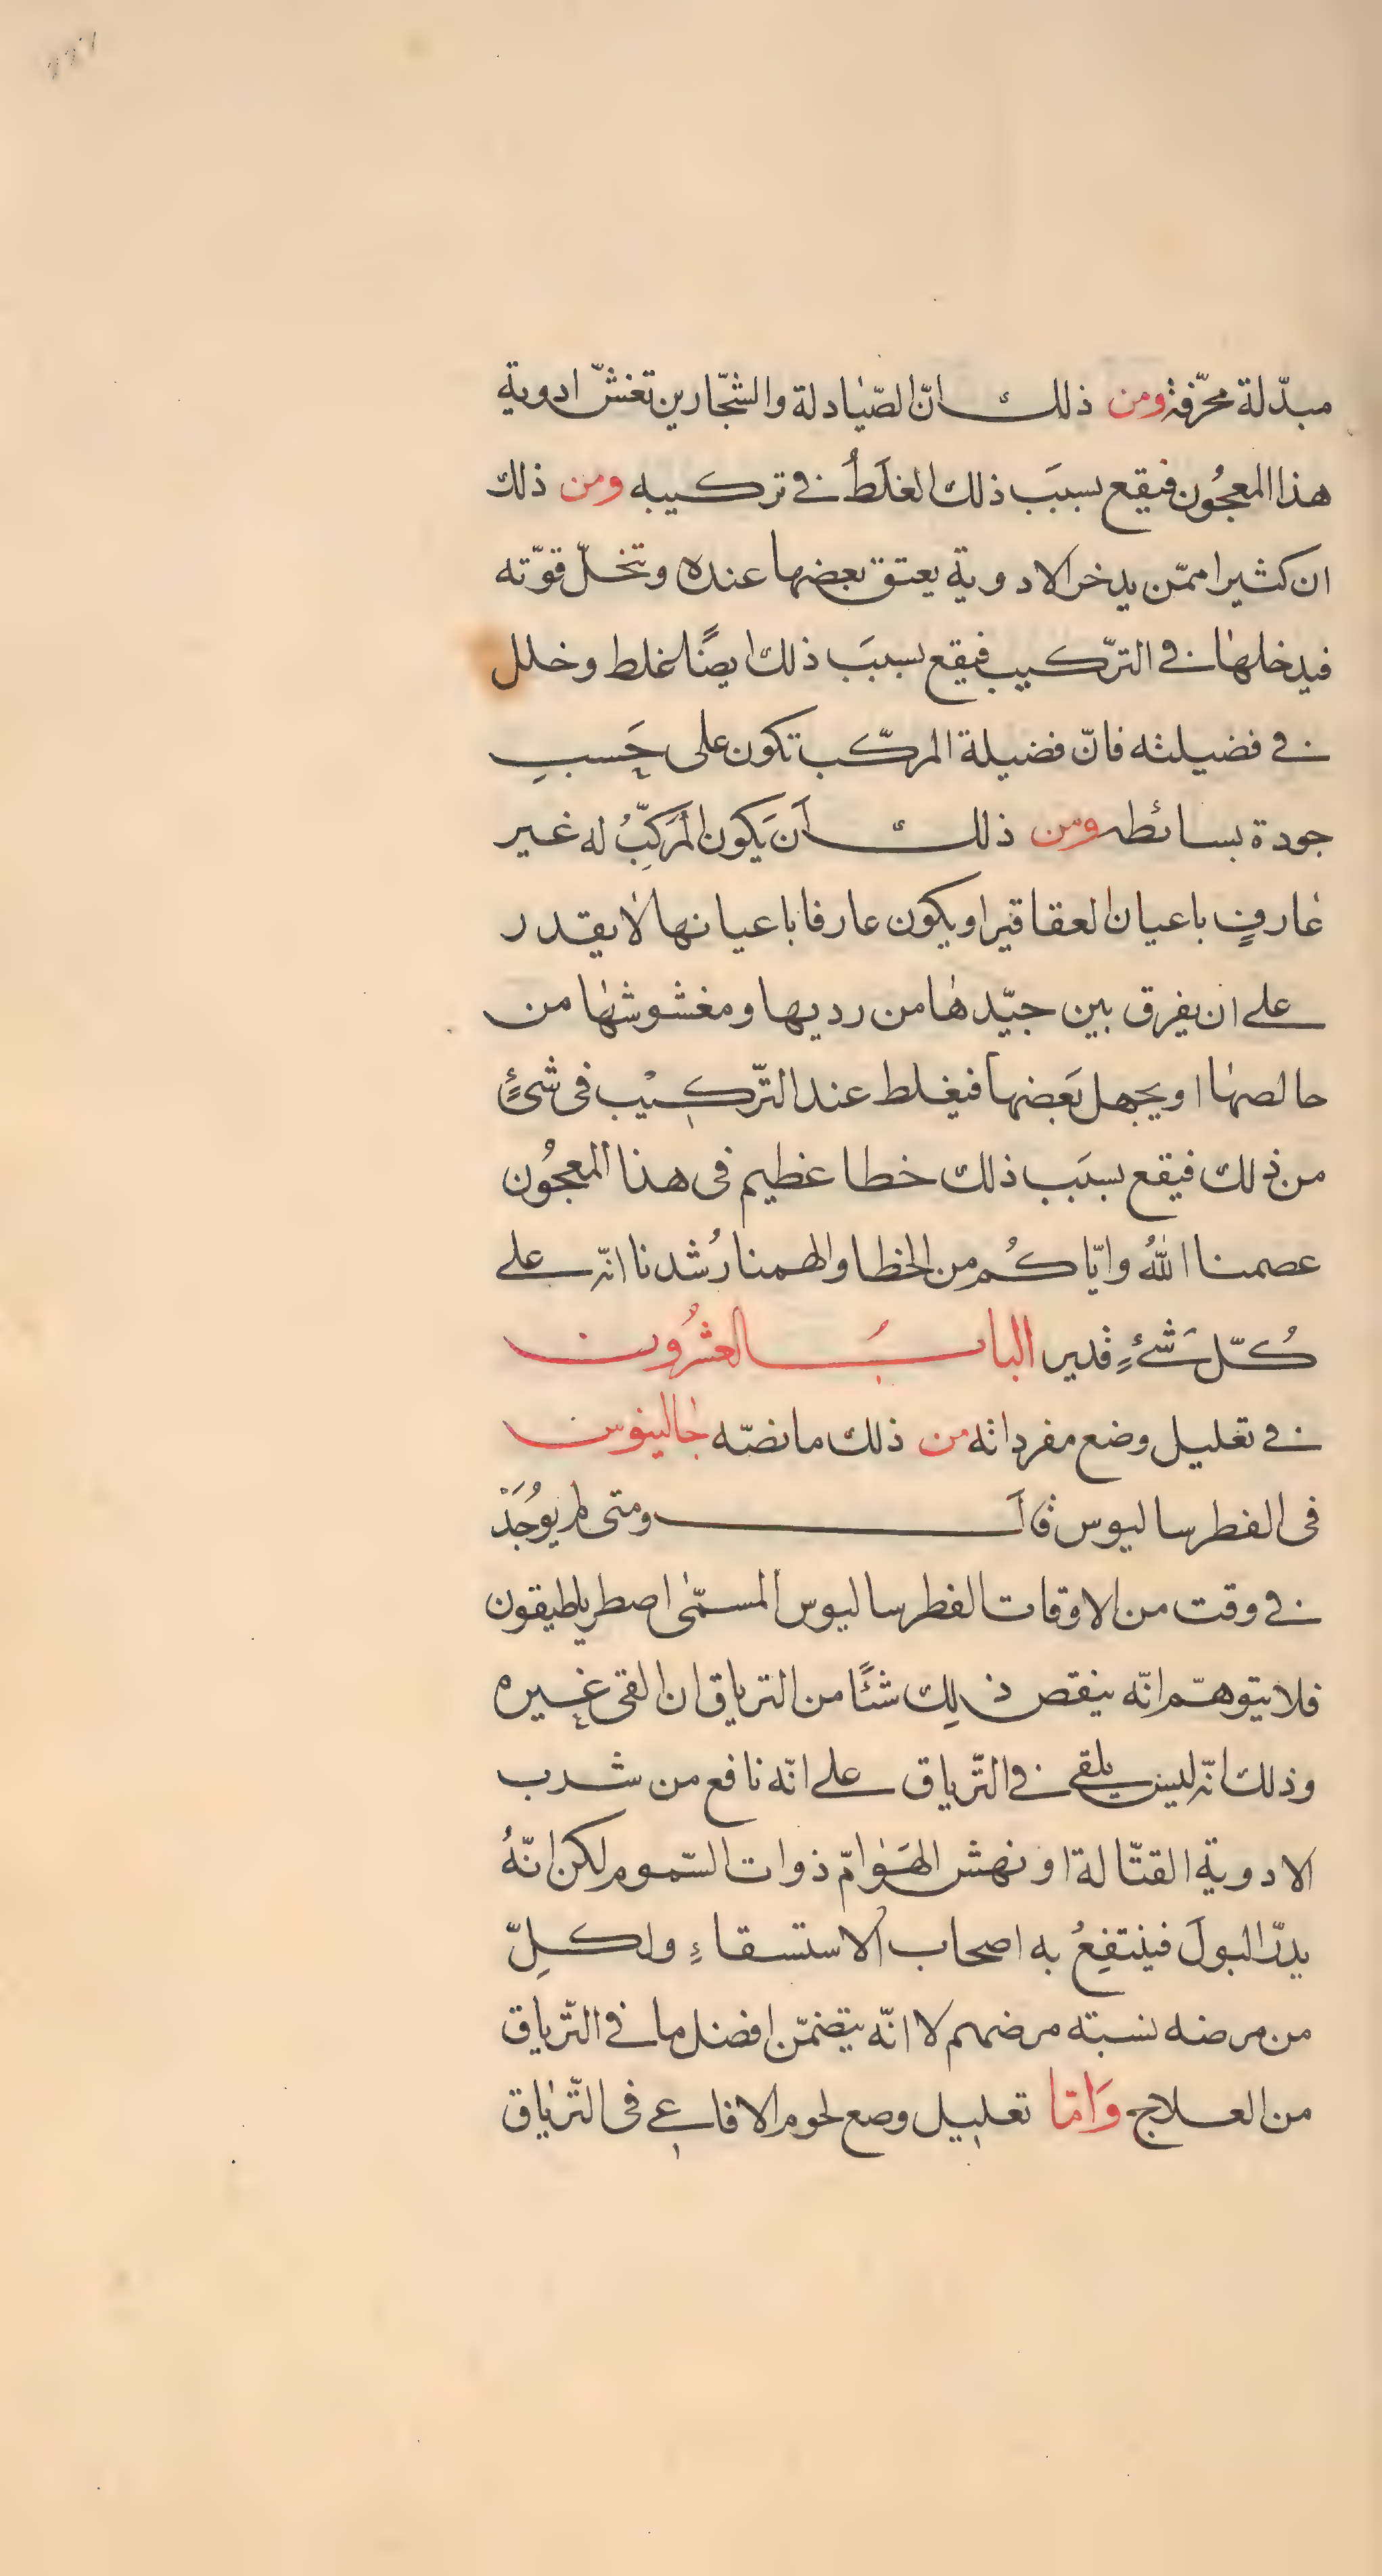 مبدّلة محرّفة ومن ذلك انّ الصّيادلة والشجّارين تغشّ ادوية
هذا المعجُون فيقع بسببَ ذلك الغلَطُ في تركيبه ومن ذلك
ان كثيرا ممّن يدخر الادوية يعتق بعضها عنده وتخلّ قوّته
فيدخلها في الترّكيب فيقع بسببَ ذلك ايضًا غلط وخلل
في فضيلته فانّ فضيلة المركّب تكون على حَسبِ
جودة بسائطه ومن ذلك اَن يَكون المُرَكِّبُ له غير
عارفٍ باعيان العقاقير او يكون عارفا باعيانها لا يقدر
على ان يفرق بين جيّدها من رديها ومغشوشها من
حالصها او يجهل بَعضها فيغلط عند الترّكيْب في شئٍ
من ذلك فيقع بسبَب ذلك خطا عظيم في هذا المعجُون
عصمنا اللهُ وايّاكُم من الخطا والهمنا رُشدنا انّه على
كُلّ شَئٍ قدير البابَ العشرُون
في تعليل وضع مفرداته من ذلك ما نصّه جالينوس
في الفطرساليوس قالَ ومتى لم يوُجَدْ
في وقت من الاوقات الفطرساليوس المسمّى اصطرياطيقون
فلا يتوهّم انّه ينقص ذلك شئًا من الترياق ان القى غيره
وذلك انّه ليس يلقى في الترّياق على انّه نافع من شرب
الادوية القتّالة او نهش الهَوامّ ذوات السّموم لكن انّهُ
يدرّ البولَ فينتفِعُ به اصحاب الاستسقاءِ ولكلِّ
من مرضه نسبته مرضهم لا انّه يتضمّن افضل ما في الترّياق
من العلاج وَامّا تعليل وضع لحوم الافاعي في الترّياق